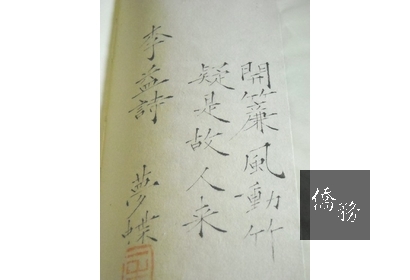 開簾風動竹
疑是故人来
李益詩 夢蝶
僑務